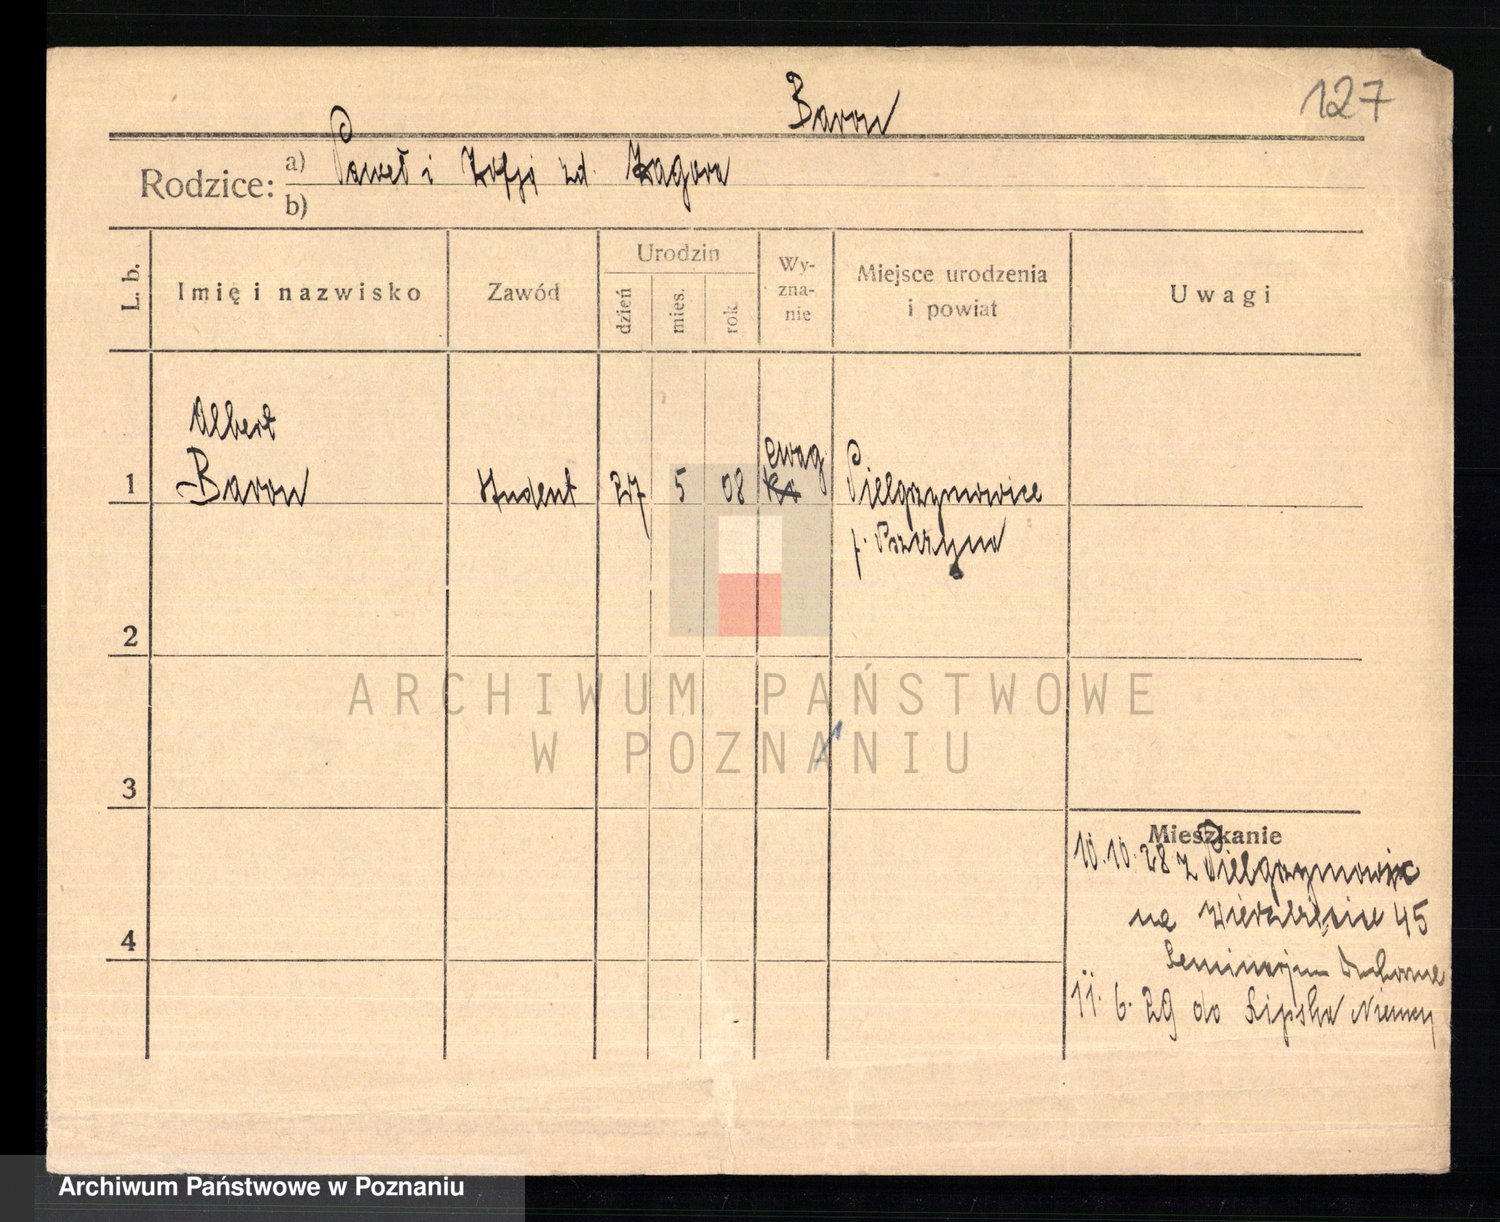 Baron
127
Rodzice: a) Paweł i Zofja zd. Zagora
b)
L. b.
Imię i nazwisko
Zawód
Urodzin
dzień
mies.
rok
Wy-
zna-
nie
Miejsce urodzenia
i powiat
Uwagi
Albert
1 Baron student 27 5 08 ewag Pielgrzymowice
p. Pszczyna
2
3
4
ARCHIWUM PAŃSTWOWE
W POZNANIU
Mieszkanie
10.10.28 z Pielgrzymowic
na Wierzbięcice 45
Seminarjum Duchowne
11.6.29 do Lipska Niemcy
Archiwum Państwowe w Poznaniu